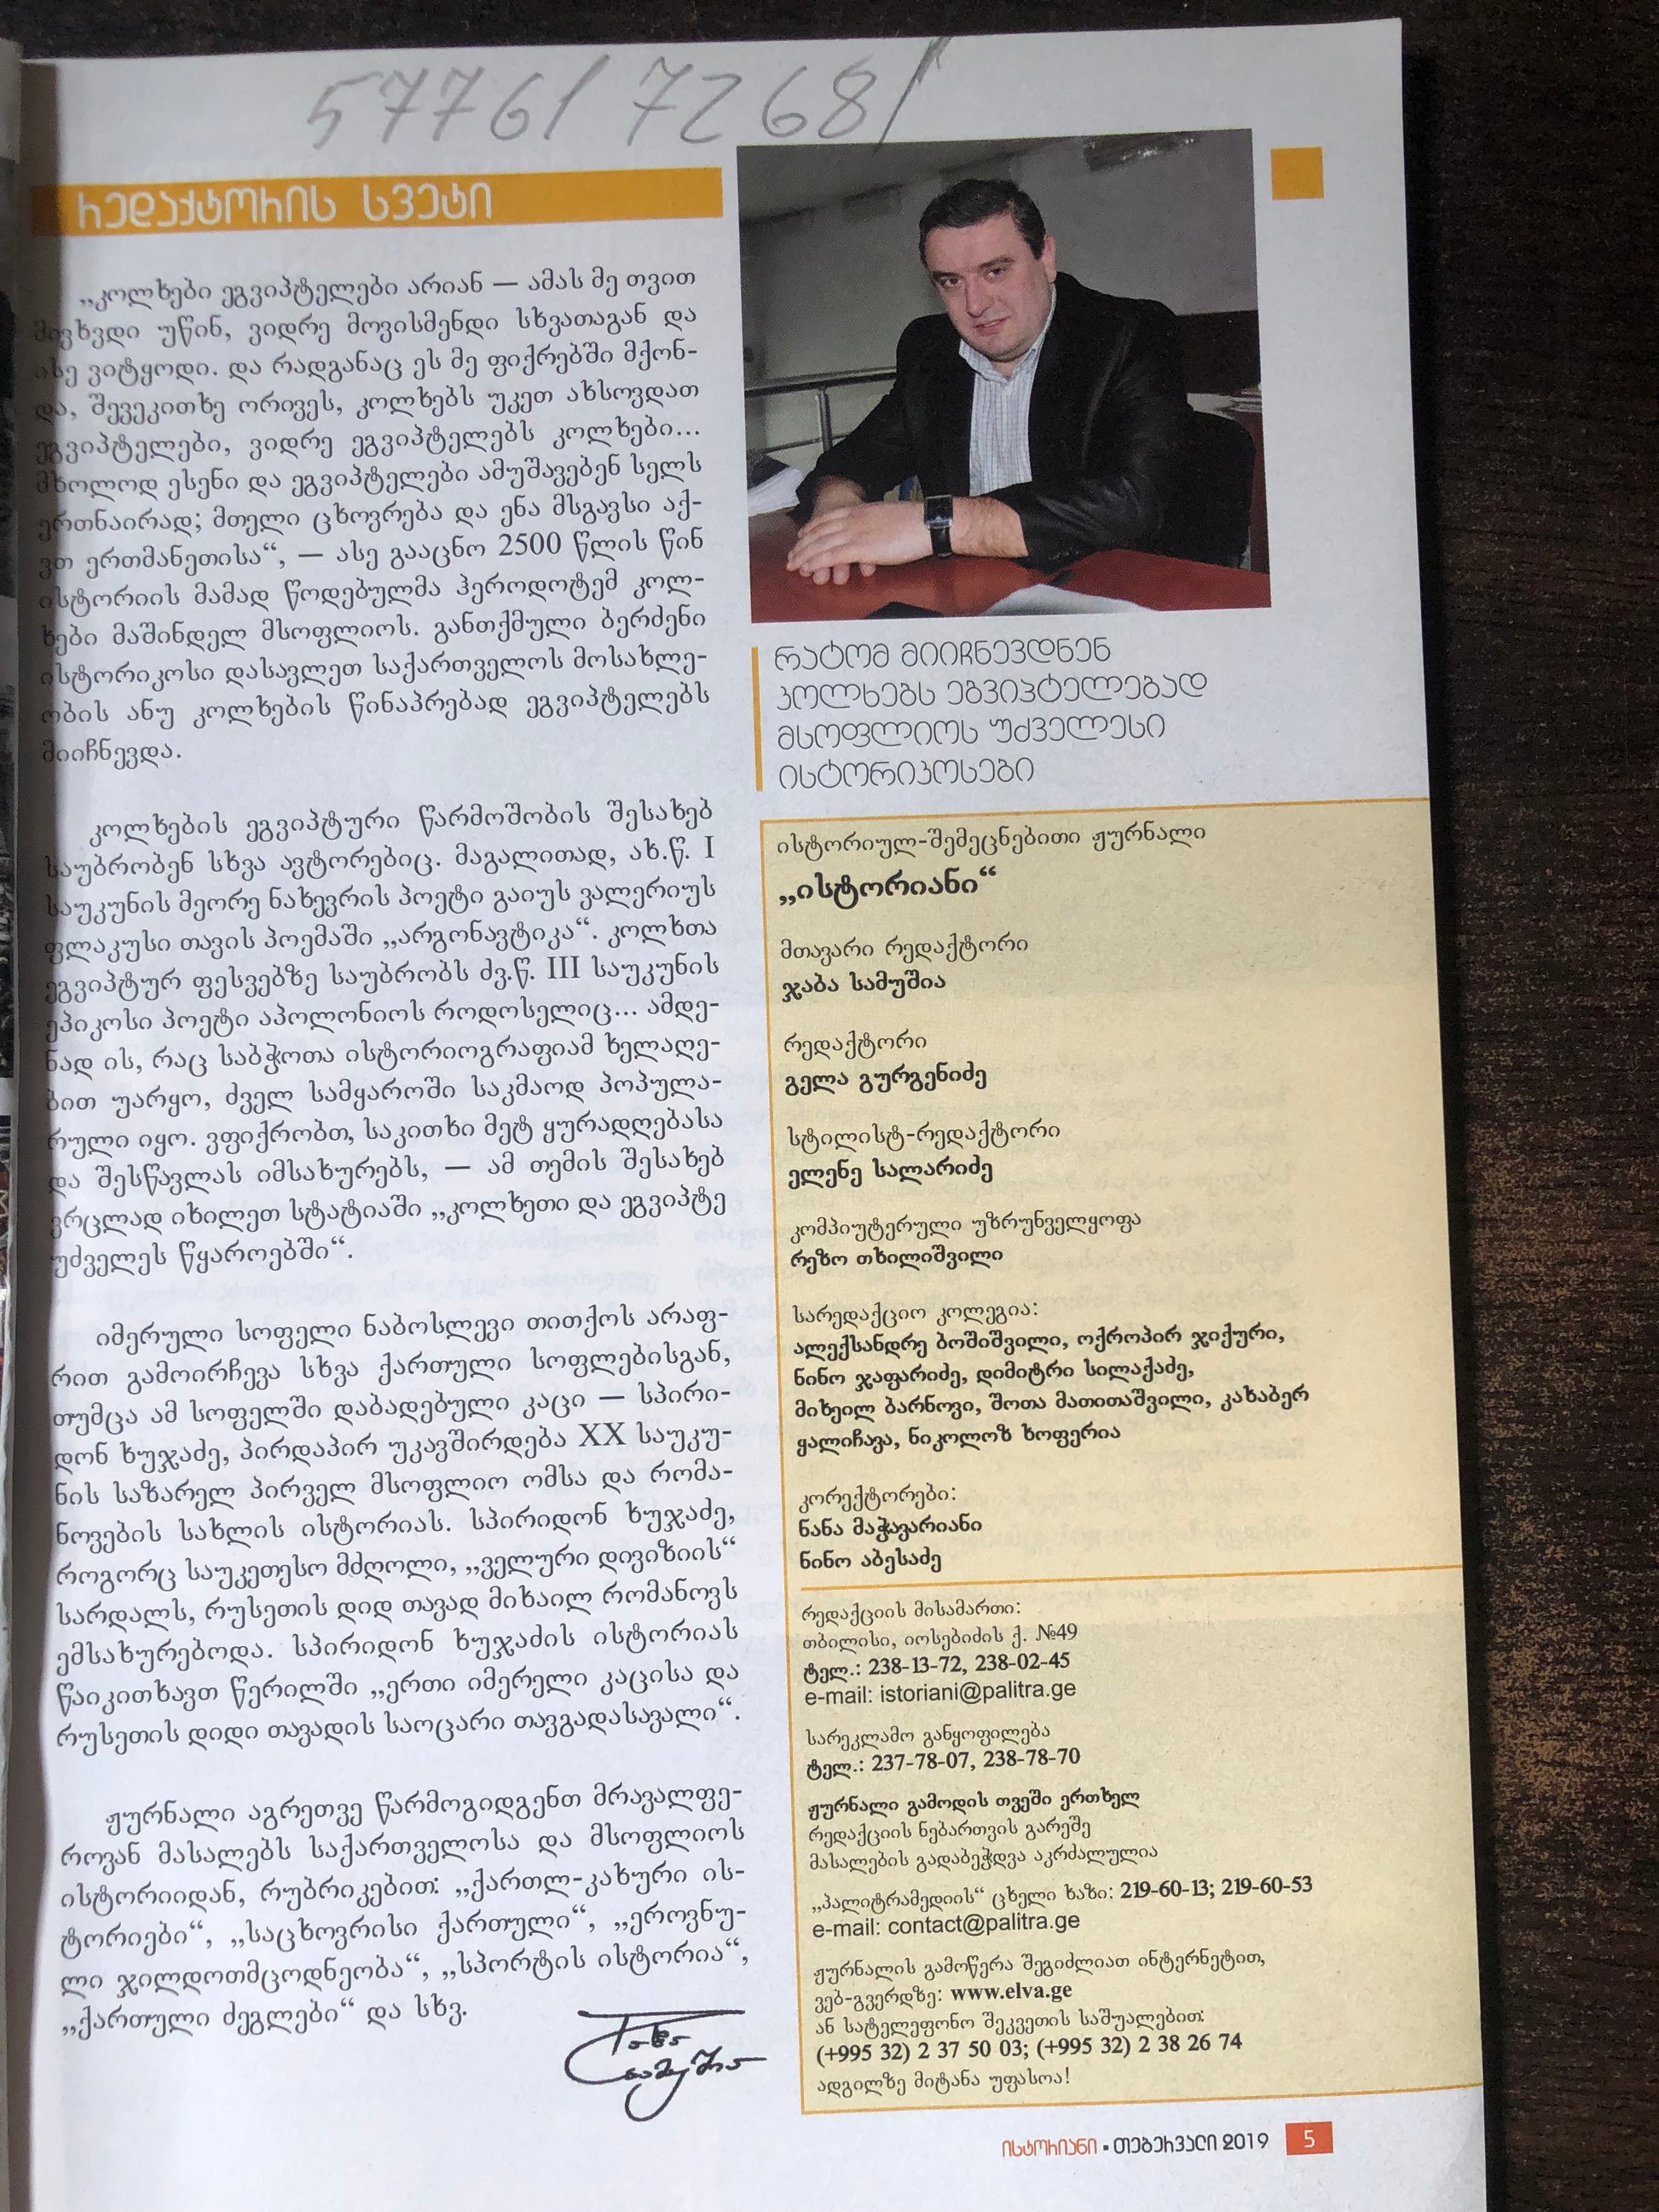 57761 7268/
რედაქტორის სვეტი
„კოლხები ეგვიპტელები არიან — ამას მე თვით
მივხვდი უწინ, ვიდრე მოვისმენდი სხვათაგან და
ისე ვიტყოდი. და რადგანაც ეს მე ფიქრებში მქონ-
და, შევეკითხე ორივეს, კოლხებს უკეთ ახსოვდათ
ეგვიპტელები, ვიდრე ეგვიპტელებს კოლხები...
მხოლოდ ესენი და ეგვიპტელები ამუშავებენ სელს
ერთნაირად; მთელი ცხოვრება და ენა მსგავსი აქ-
ვთ ერთმანეთისა“, — ასე გააცნო 2500 წლის წინ
ისტორიის მამად წოდებულმა ჰეროდოტემ კოლ-
ხები მაშინდელ მსოფლიოს. განთქმული ბერძენი
ისტორიკოსი დასავლეთ საქართველოს მოსახლე-
ობის ანუ კოლხების წინაპრებად ეგვიპტელებს
მიიჩნევდა.
კოლხების ეგვიპტური წარმოშობის შესახებ
საუბრობენ სხვა ავტორებიც. მაგალითად, ახ.წ. I
საუკუნის მეორე ნახევრის პოეტი გაიუს ვალერიუს
ფლაკუსი თავის პოემაში „არგონავტიკა“. კოლხთა
ეგვიპტურ ფესვებზე საუბრობს ძვ.წ. III საუკუნის
ეპიკოსი პოეტი აპოლონიოს როდოსელიც... ამდე-
ნად ის, რაც საბჭოთა ისტორიოგრაფიამ ხელაღე-
ბით უარყო, ძველ სამყაროში საკმაოდ პოპულა-
რული იყო. ვფიქრობთ, საკითხი მეტ ყურადღებასა
და შესწავლას იმსახურებს, — ამ თემის შესახებ
ვრცლად იხილეთ სტატიაში „კოლხეთი და ეგვიპტე
უძველეს წყაროებში“.
იმერული სოფელი ნაბოსლევი თითქოს არაფ-
რით გამოირჩევა სხვა ქართული სოფლებისგან,
თუმცა ამ სოფელში დაბადებული კაცი — სპირი-
დონ ხუჯაძე, პირდაპირ უკავშირდება XX საუკუ-
ნის საზარელ პირველ მსოფლიო ომსა და რომა-
ნოვების სახლის ისტორიას. სპირიდონ ხუჯაძე,
როგორც საუკეთესო მძღოლი, „ველური დივიზიის“
სარდალს, რუსეთის დიდ თავად მიხაილ რომანოვს
ემსახურებოდა. სპირიდონ ხუჯაძის ისტორიას
წაიკითხავთ წერილში „ერთი იმერელი კაცისა და
რუსეთის დიდი თავადის საოცარი თავგადასავალი“.
ჟურნალი აგრეთვე წარმოგიდგენთ მრავალფე-
როვან მასალებს საქართველოსა და მსოფლიოს
ისტორიიდან, რუბრიკებით: „ქართლ-კახური ის-
ტორიები“, „საცხოვრისი ქართული“, „ეროვნუ-
ლი ჯილდოთმცოდნეობა“, „სპორტის ისტორია“,
„ქართული ძეგლები“ და სხვ.
რატომ მიიჩნევდნენ
კოლხებს ეგვიპტელებად
მსოფლიოს უძველესი
ისტორიკოსები
ისტორიულ-შემეცნებითი ჟურნალი
„ისტორიანი“
მთავარი რედაქტორი
ჯაბა სამუშია
რედაქტორი
გელა გურგენიძე
სტილისტ-რედაქტორი
ელენე სალარიძე
კომპიუტერული უზრუნველყოფა
რეზო თხილიშვილი
სარედაქციო კოლეგია:
ალექსანდრე ბოშიშვილი, ოქროპირ ჯიქური,
ნინო ჯაფარიძე, დიმიტრი სილაქაძე,
მიხეილ ბარნოვი, შოთა მათითაშვილი, კახაბერ
ყალიჩავა, ნიკოლოზ ხოფერია
კორექტორები:
ნანა მაჭავარიანი
ნინო აბესაძე
რედაქციის მისამართი:
თბილისი, იოსებიძის ქ. №49
ტელ.: 238-13-72, 238-02-45
e-mail: istoriani@palitra.ge
სარეკლამო განყოფილება
ტელ.: 237-78-07, 238-78-70
ჟურნალი გამოდის თვეში ერთხელ
რედაქციის ნებართვის გარეშე
მასალების გადაბეჭდვა აკრძალულია
„პალიტრამედიის“ ცხელი ხაზი: 219-60-13; 219-60-53
e-mail: contact@palitra.ge
ჟურნალის გამოწერა შეგიძლიათ ინტერნეტით,
ვებ-გვერდზე: www.elva.ge
ან სატელეფონო შეკვეთის საშუალებით:
(+995 32) 2 37 50 03; (+995 32) 2 38 26 74
ადგილზე მიტანა უფასოა!
ისტორიანი ▪ თებერვალი 2019 5